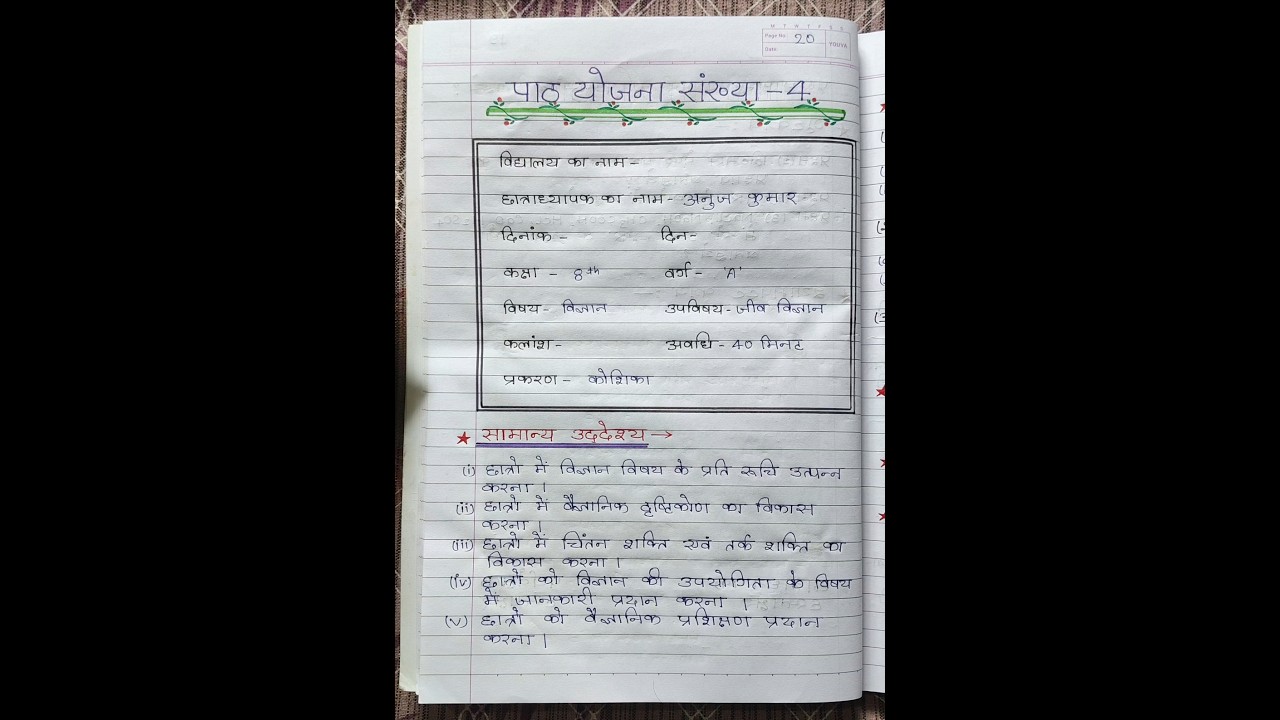 M T W T F S S
Page No.: 20
Date:
YOUVA
पाठ योजना संख्या - 4
विद्यालय का नाम -
छात्राध्यापक का नाम - अनुज कुमार
दिनांक - दिन-
कक्षा - 8th वर्ग - 'A'
विषय - विज्ञान उपविषय - जीव विज्ञान
कलांश - अवधि - 40 मिनट
प्रकरण - कोशिका
★ सामान्य उद्देश्य →
(i) छात्रो में विज्ञान विषय के प्रति रूचि उत्पन्न
करना ।
(ii) छात्रो में वैज्ञानिक दृष्टिकोण का विकास
करना ।
(iii) छात्रो में चिंतन शक्ति एवं तर्क शक्ति का
विकास करना ।
(iv) छात्रो को विज्ञान की उपयोगिता के विषय
में जानकारी प्रदान करना ।
(v) छात्रो को वैज्ञानिक प्रशिक्षण प्रदान
करना ।